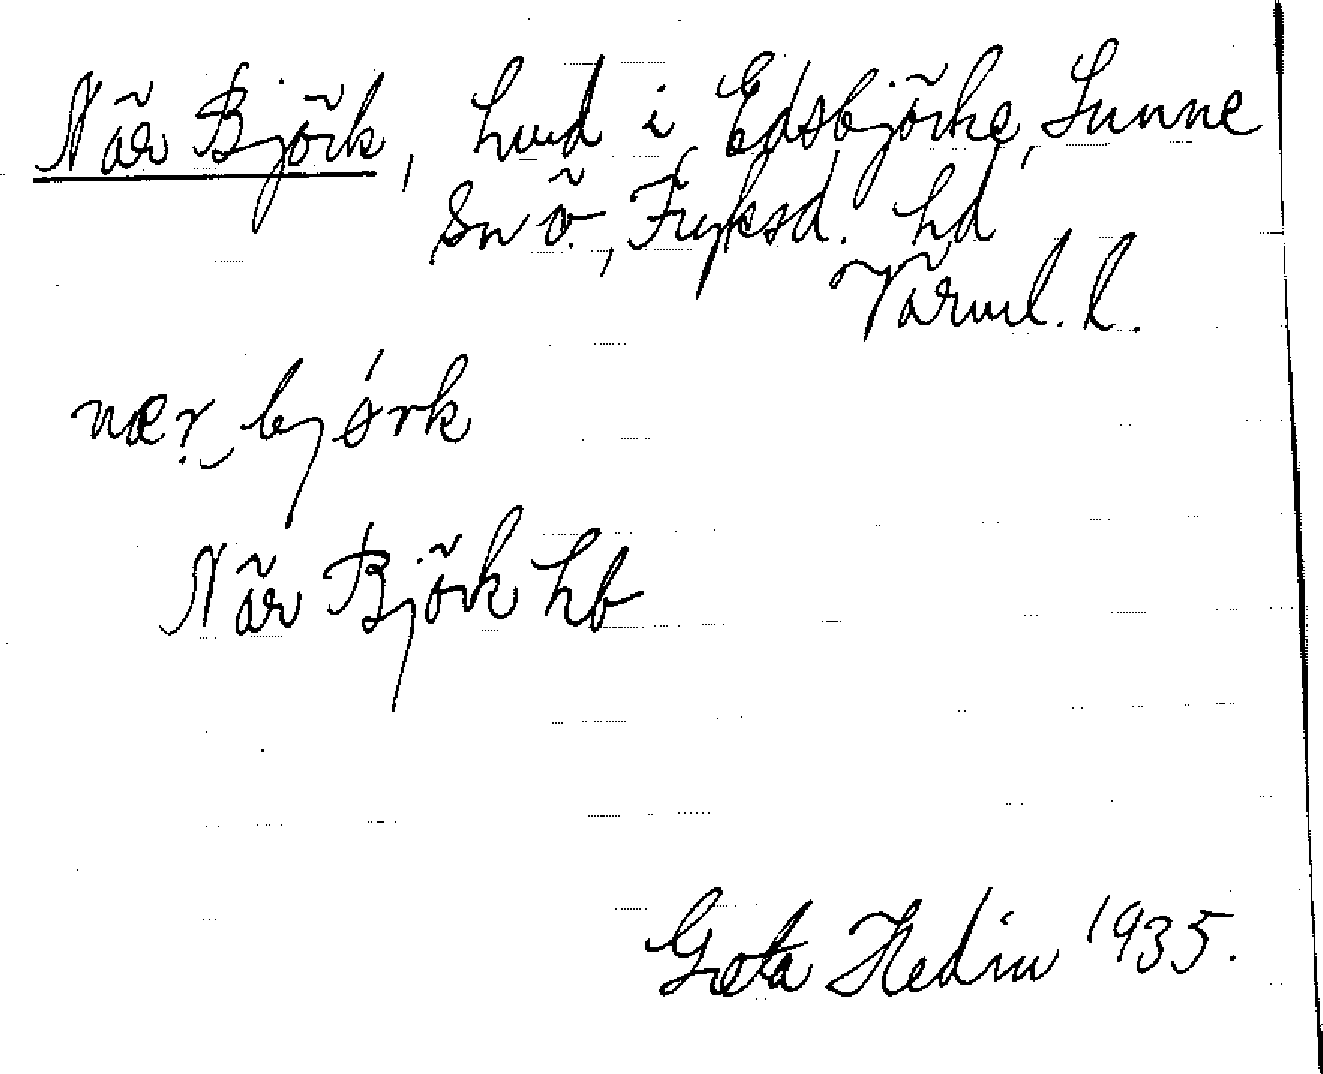 När Björk, hmd i Edsbjörke, Sunne
sn ö., Fryksd. hd
Värml. l.
næṛ‿bjǿrk
När Björk hb
Greta Hedin 1935.